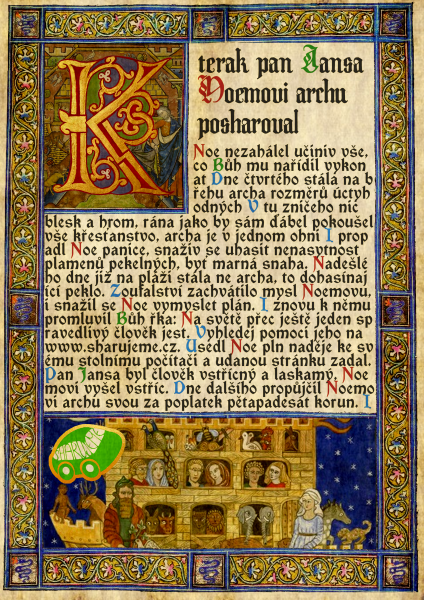 Kterak pan Jansa
Noemovi archu
posharoval
Noe nezahálel učiniv vše,
co Bůh mu nařídil vykon
at Dne čtvrtého stála na b
řehu archa rozměrů úctyh
odných V tu zničeho nic
blesk a hrom, rána jako by sám ďábel pokoušel
vše křesťanstvo, archa je v jednom ohni I prop
adl Noe panice, snaživ se uhasit nenasytnost
plamenů pekelných, byť marná snaha. Nadešlé
ho dne již na pláži stála ne archa, to dohasínaj
ící peklo. Zoufalství zachvátilo mysl Noemovu,
i snažil se Noe vymyslet plán. I znovu k němu
promluvil Bůh řka: Na světě přec ještě jeden sp
ravedlivý člověk jest. Vyhledej pomoci jeho na
www.sharujeme.cz. Usedl Noe pln naděje ke sv
ému stolnímu počítači a udanou stránku zadal.
Pan Jansa byl člověk vstřícný a laskamý. Noe
movi vyšel vstříc. Dne dalšího propůjčil Noemo
vi archu svou za poplatek pětapadesát korun. I